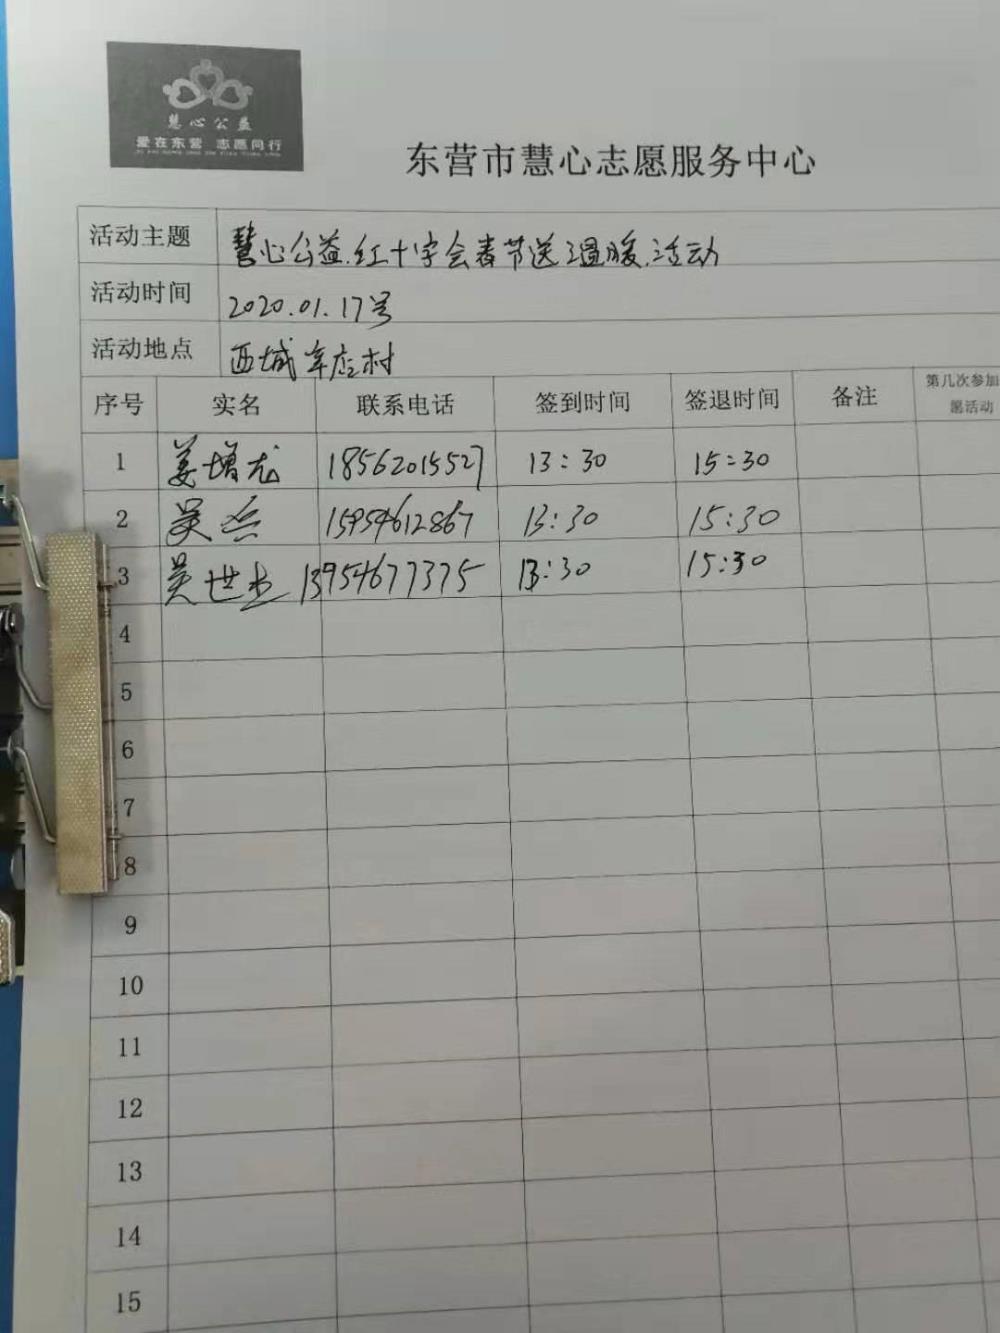 慧心公益
爱在东营 志愿同行
东营市慧心志愿服务中心
活动主题 慧心公益.红十字会春节送温暖.活动
活动时间 2020.01.17号
活动地点 西城辛应村
序号 实名 联系电话 签到时间 签退时间 备注 第几次参加
愿活动
1 姜增龙 18562015527 13:30 15:30
2 吴 15954612867 13:30 15:30
3 吴世杰 13954677375 13:30 15:30
4
5
6
7
8
9
10
11
12
13
14
15